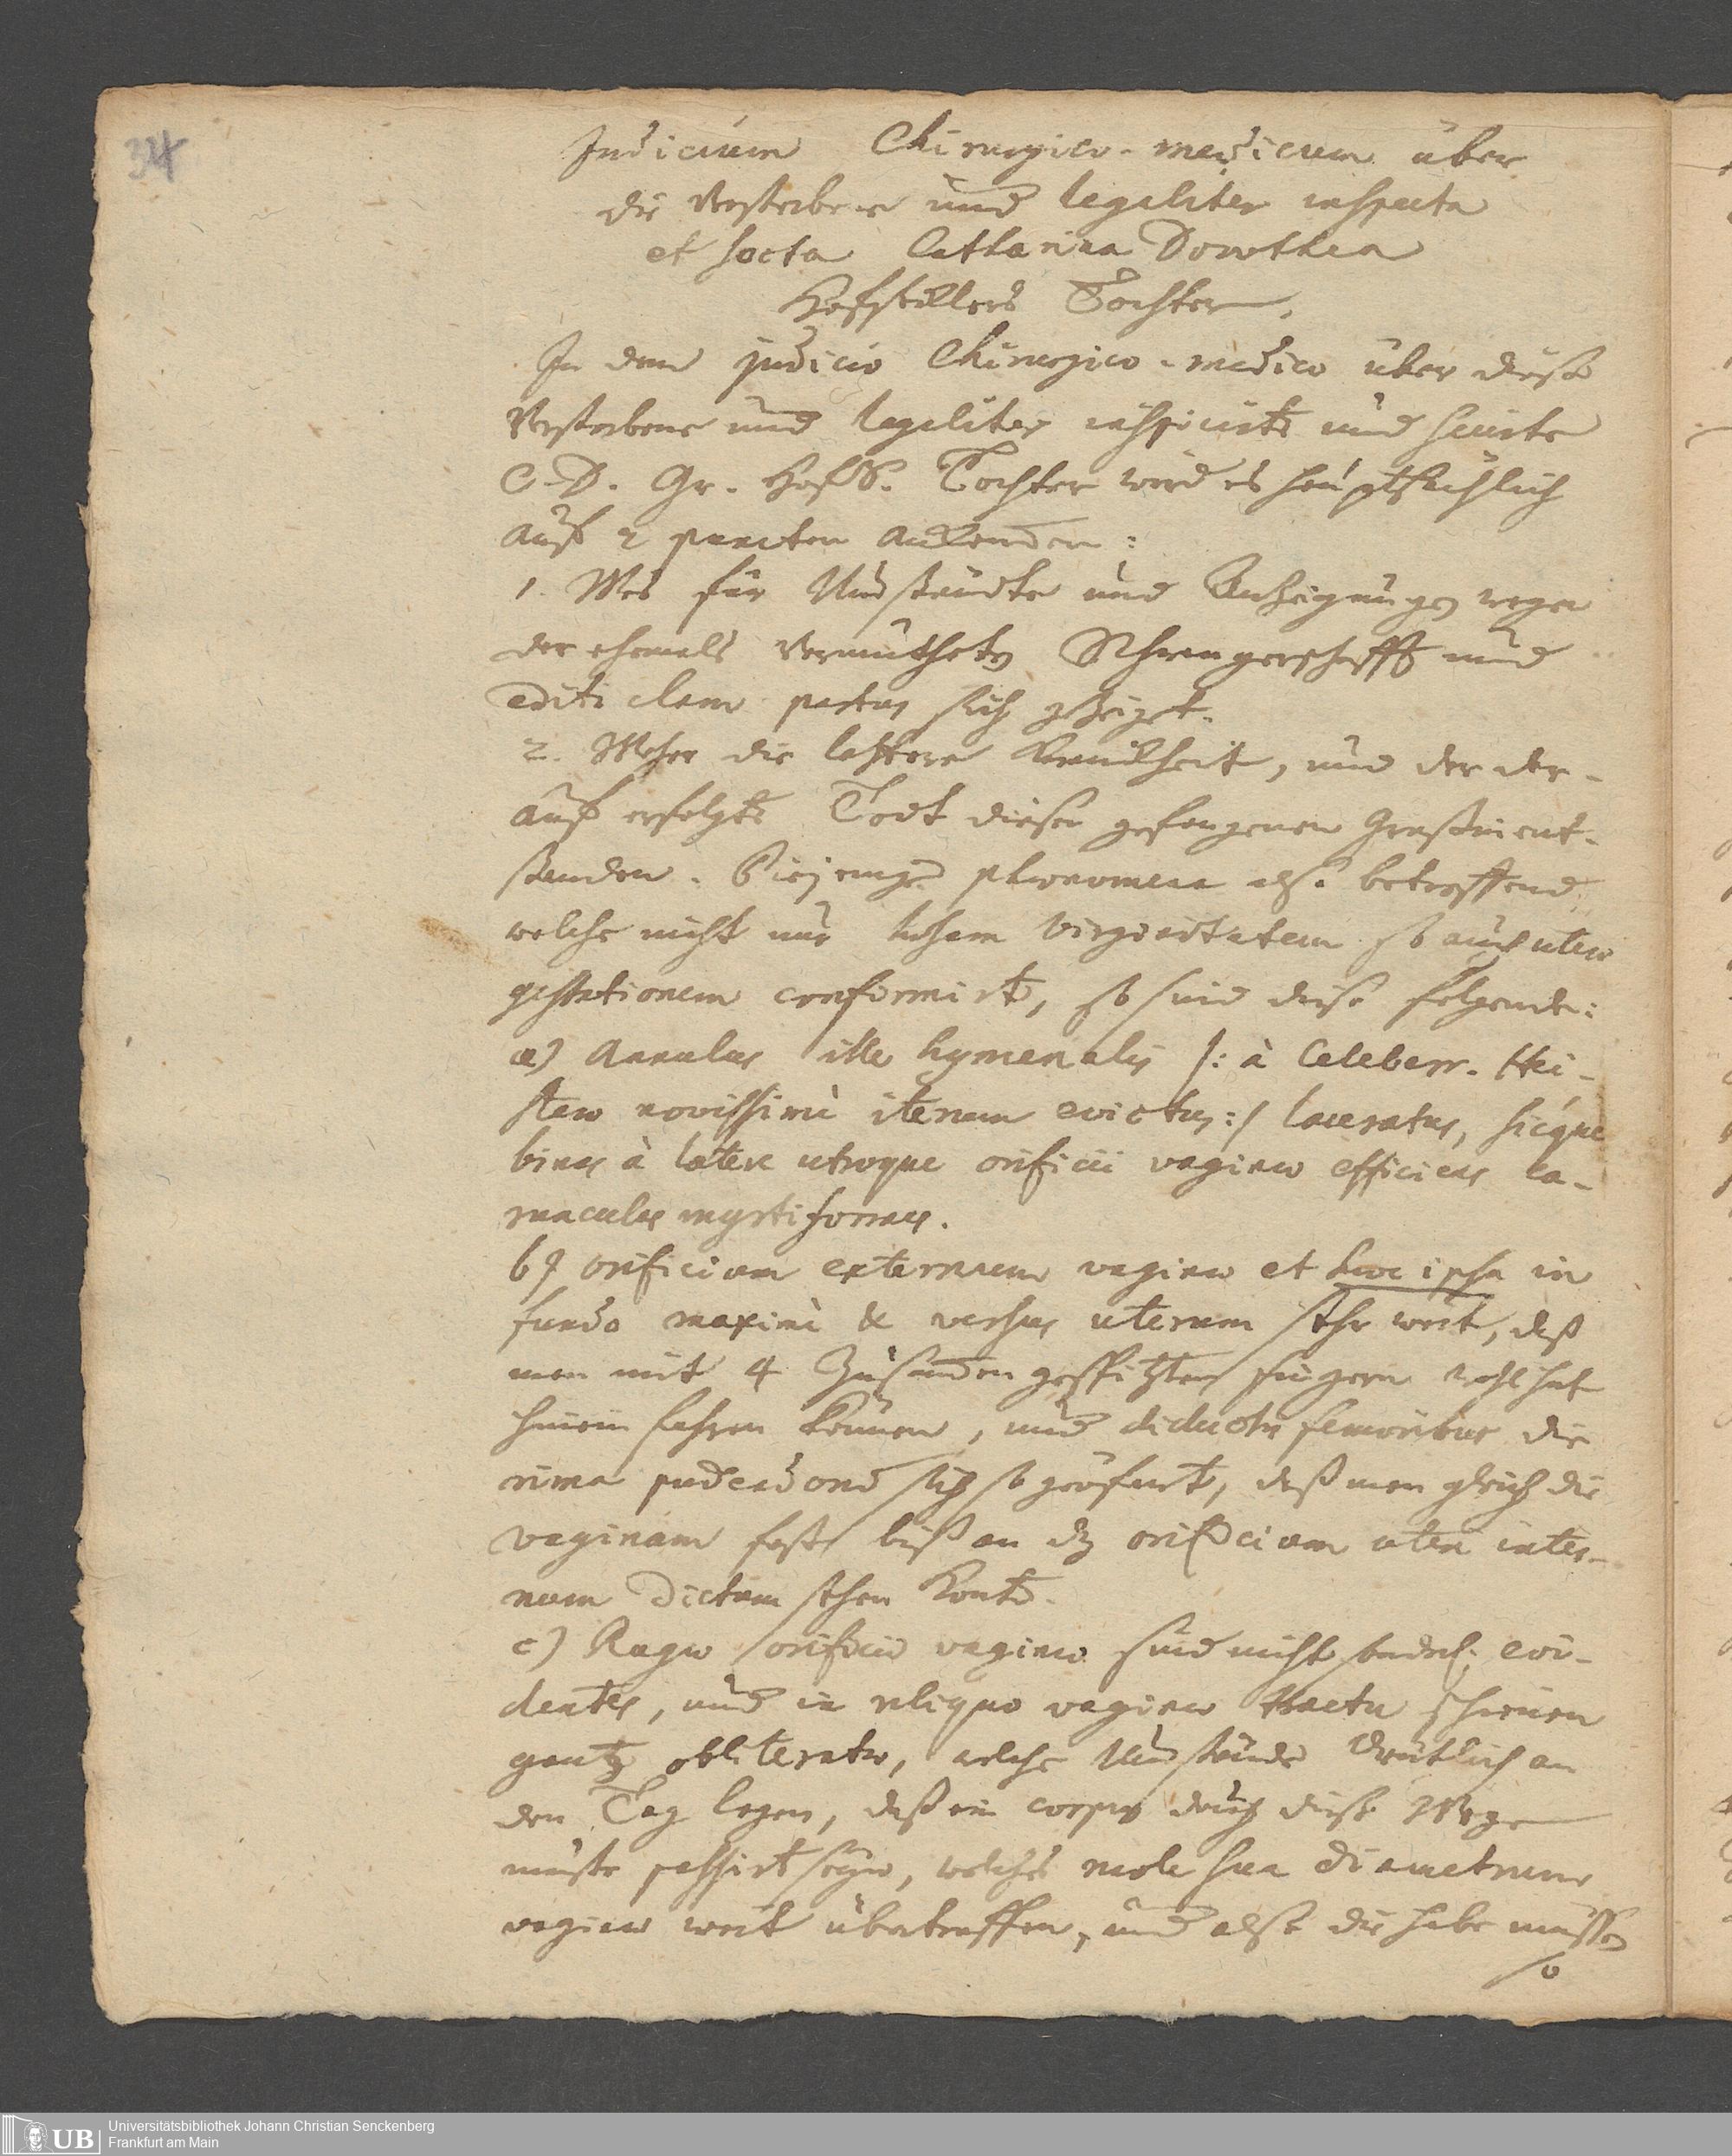 34
Judicium Chirurgico-medicum über
die Verstorbene und legaliter inspecta
et secta Catharina Dorothea
Hofstillers Tochter.
In dem judicio Chirurgico-medico über diese
Verstorbene und legaliter inspicirte und secirte
C. D. Gr. Tochter wird es hauptsächlich
auf 2 puncten ankommen:
1. Was für Umständte und Anzeigungen wegen
der ehemals vermutheten Schwangerschafft und
editi clam partus sich gezeiget.
2. Woher die letztere Kranckheit, und der dar-
auf erfolgte Todt dieser gefangenen Person ent-
standen. Diejenige phænomena also betreffend
welche nicht nur læsam virginitatem so auch uteri
gestationem confirmirt, so sind diese folgende:
a) Annulus ille hymenalis /: à Celeberr. Hei-
stero novissimè iterum evictus :/ laceratus, sicque
binas à latere utroque orificii vaginæ efficiens ca-
runculas myrtiformes.
b) orificium externum vaginæ et hæc ipsa in
fundo maximè & versus uterum sehr weit, daß
man mit 4 Zusammen gespitzten fingern wohl hat
hinein fahren können, und diductis femoribus die
rima pudendorum sich so geöfnet, daß man gleich die
vaginam fast biß an dz orificium uteri inter-
num dictum sehen konte.
c) Rugæ orificii vaginæ sind nicht sonderl. evi-
dentes, und in reliquo vaginæ tractu schienen
gantz obliteratæ, welche Umstände deutlich an
den Tag legen, daß ein corpus durch diese Wege
müste passirt seyn, welches mole sua diametrum
vaginæ weit übertroffen, und also die habe müssen